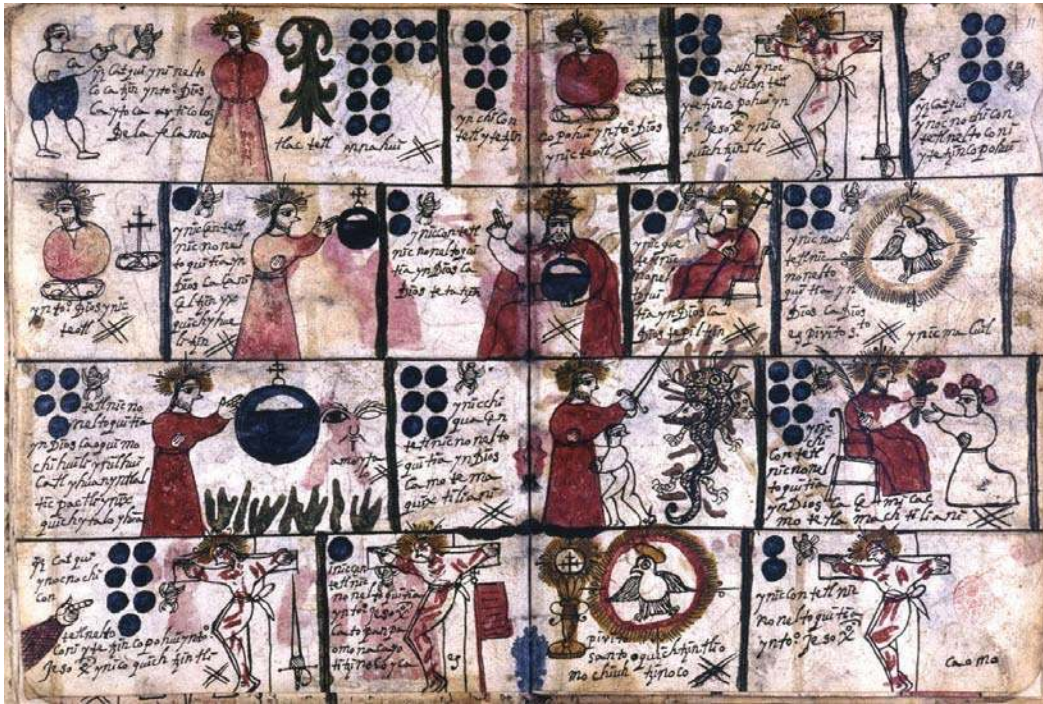 11
yz Catqui yni nelto
co ca tzin yn to.o Dios
Cayto ca articolos
De la fe ca ma
tlac tetl
onnahui
yn chi con
tetl y te tzin
co pohui yn to.o Dios
yn ic teotl
auh yn oc
no chi con tetl
y te tzin co pohui yn
to.o Jeso X yni co
quich tzin tli
yz Catqui
yn oc no chi con
tetl nelto co ni
y te tzin co pohui
yn to.o Dios yn ic
teotl
ynic cen tetl
nic no nel
to qui tia yn
Dios ca ça nè
quichyhue
li tzin
ynic con tetl
nic no nel to qui
tia yn Dios ca
Dios te ta tzin
ynic que
tetl nic
no nel
to qui
tia yn Dios ca
Dios te pil tzin
ynic nauh
tetl nic
no nelto
qui tia yn
Dios ca Dios
es pivito s.to
ynic ma cuil
tetl nic no
nelto qui tia
yn Dios ca oqui mo
chi huili yn ilhui
ca tl yhuan yn tlal
tic pac tli ynixe
quich y ta lo yhuan
amo y ta
lo
ynic chi
qua cen
tetl nic no nelto
qui tia yn Dios
ca mo te ma
quix ti lia ni
ynic
chi
con tetl
nic no ne
to qui tia
yn Dios ca ce mi cac
mo te tla ma ch ti lia ni
yz Cat qui
yn oc no chi
con
tetl nelto
coni y te tzin co pohui yn to.o
Jeso X yni co quich tzin tli
inic cen
tetl nic
no nelto qui tia
yn to.o Jeso X
ca to pan pa
omo na ca yo
ti tzi no co yca
es
pivito
santo o quich tzin tli o
mo chiuh tzi no co
ynic con tetl nic
no nel to qui tia
yn to.o Jeso X
ca o mo